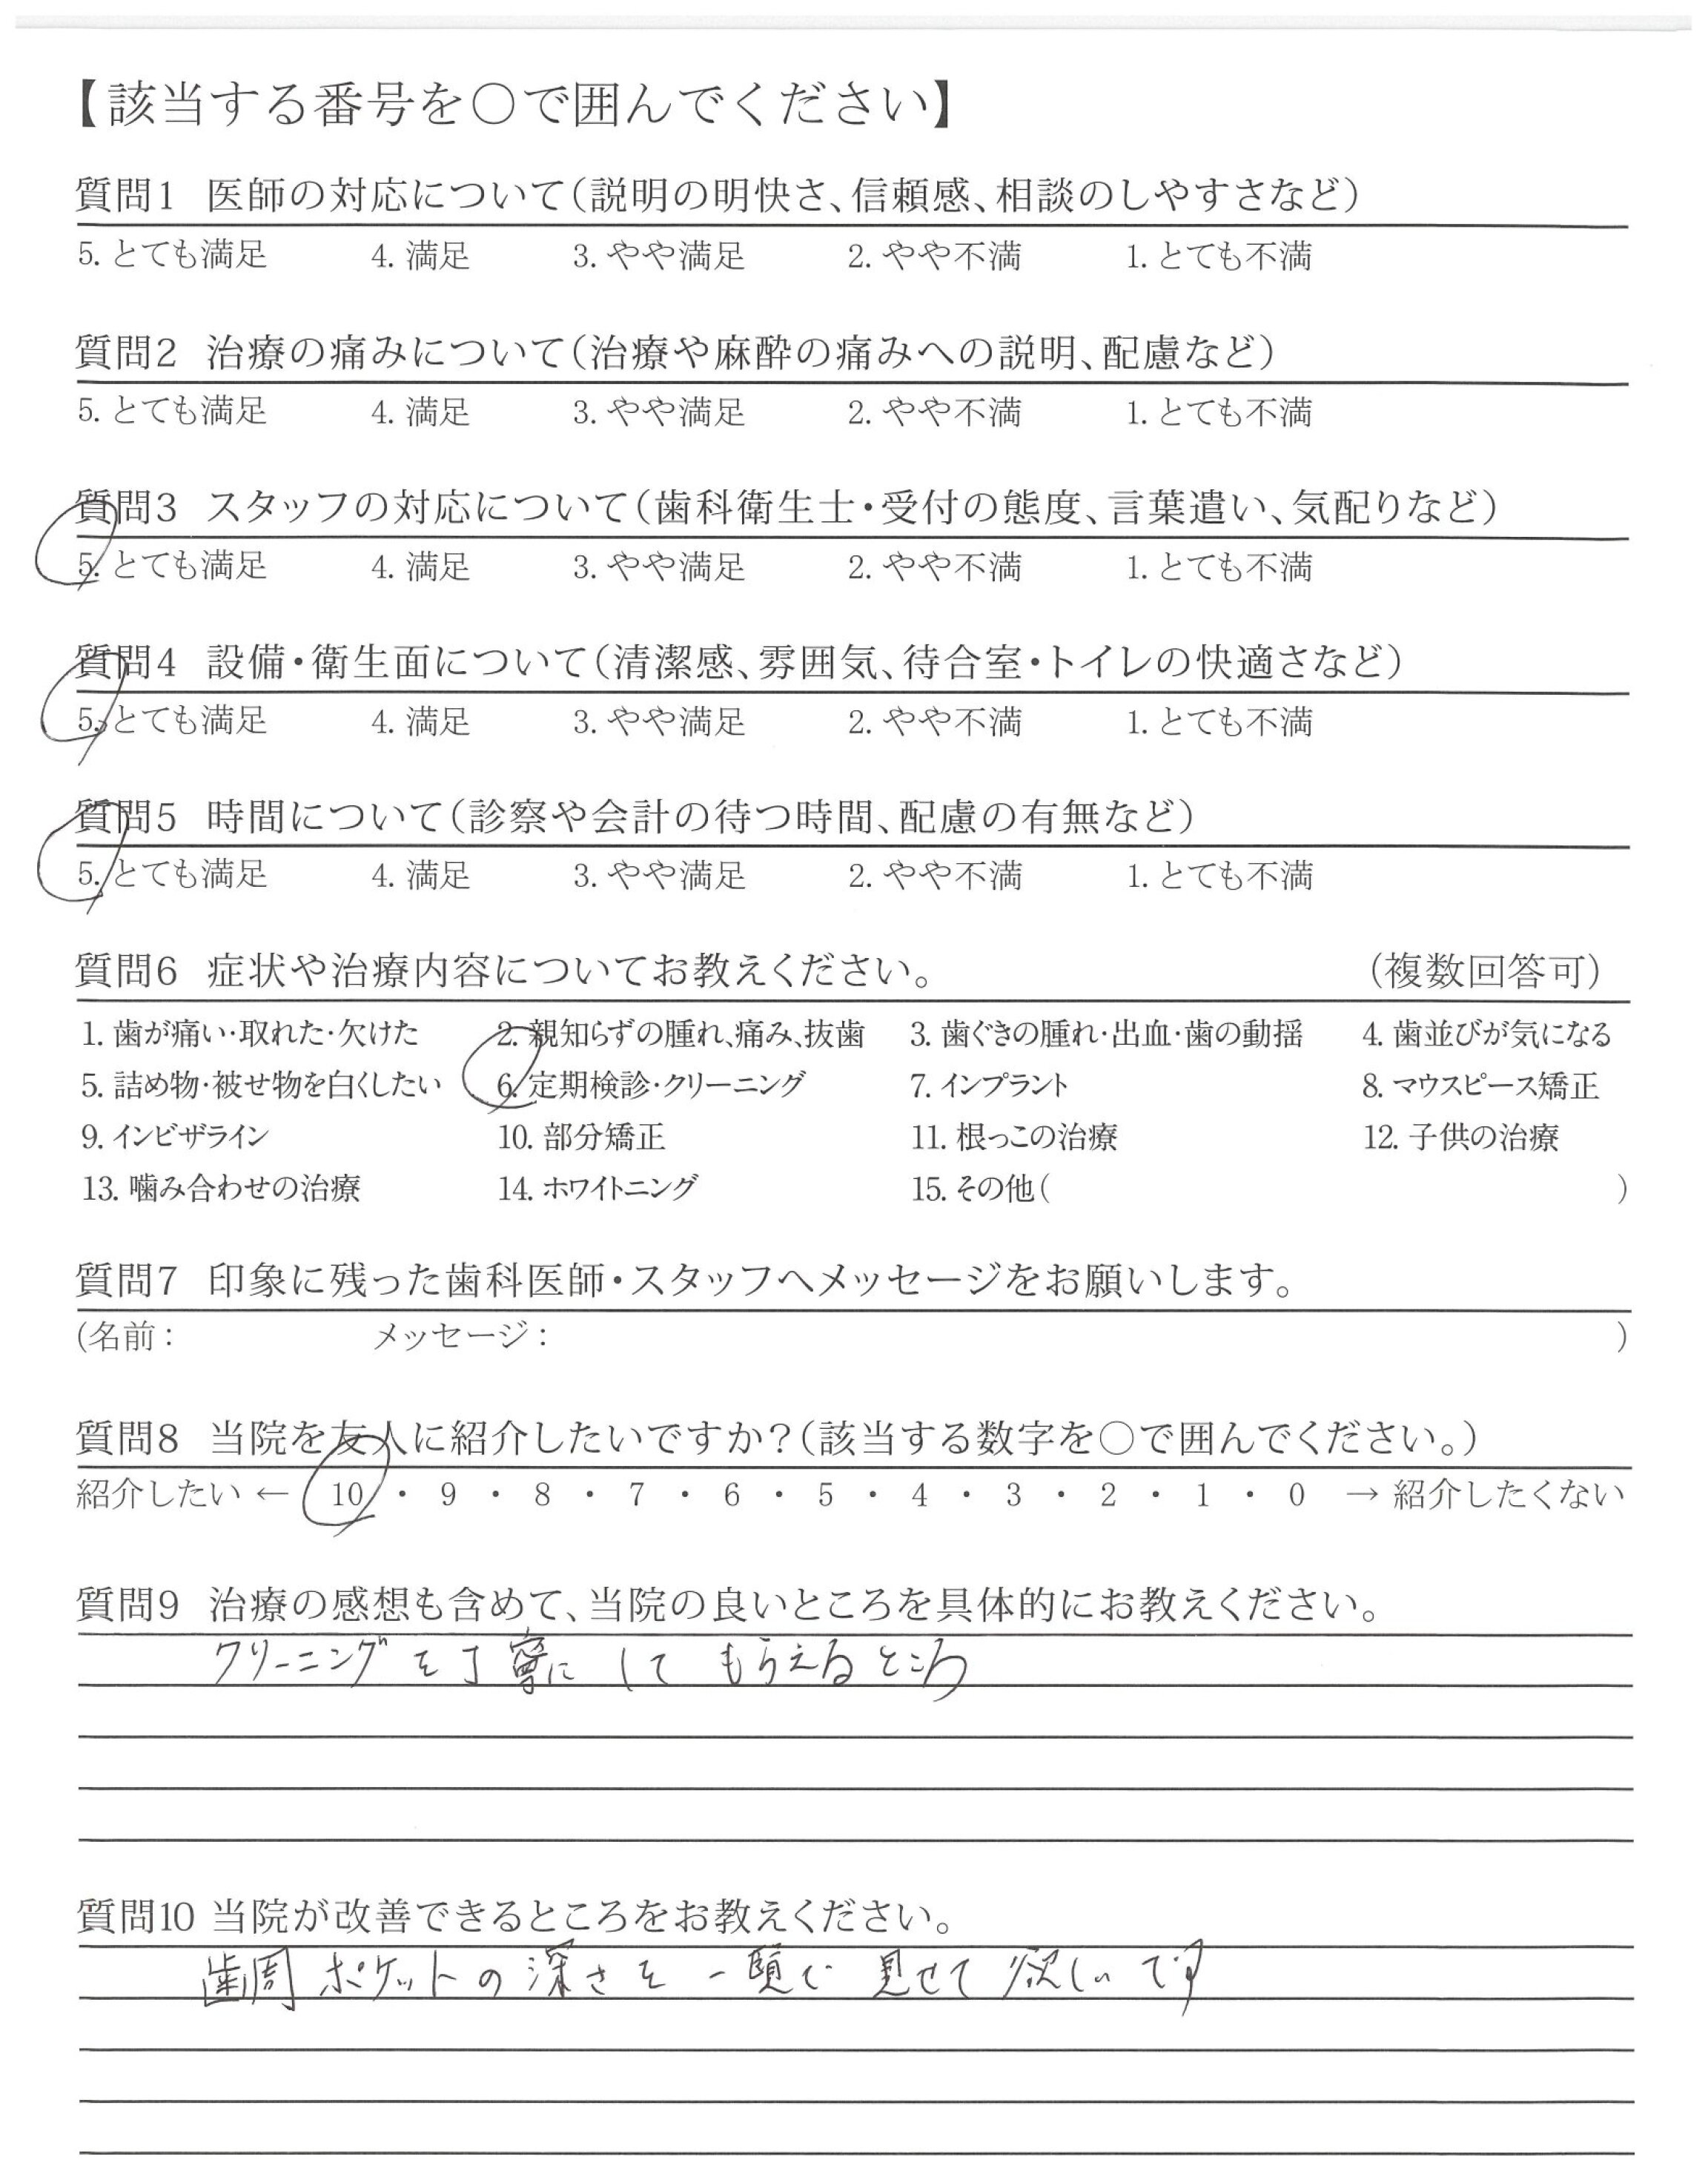 【該当する番号を○で囲んでください】
質問1 医師の対応について(説明の明快さ、信頼感、相談のしやすさなど)
5. とても満足 4. 満足 3. やや満足 2. やや不満 1. とても不満
質問2 治療の痛みについて(治療や麻酔の痛みへの説明、配慮など)
5. とても満足 4. 満足 3. やや満足 2. やや不満 1. とても不満
質問3 スタッフの対応について(歯科衛生士・受付の態度、言葉遣い、気配りなど)
5. とても満足 4. 満足 3. やや満足 2. やや不満 1. とても不満
質問4 設備・衛生面について(清潔感、雰囲気、待合室・トイレの快適さなど)
5. とても満足 4. 満足 3. やや満足 2. やや不満 1. とても不満
質問5 時間について(診察や会計の待つ時間、配慮の有無など)
5. とても満足 4. 満足 3. やや満足 2. やや不満 1. とても不満
質問6 症状や治療内容についてお教えください。 (複数回答可)
1. 歯が痛い・取れた・欠けた 2. 親知らずの腫れ、痛み、抜歯 3. 歯ぐきの腫れ・出血・歯の動揺 4. 歯並びが気になる
5. 詰め物・被せ物を白くしたい 6. 定期検診・クリーニング 7. インプラント 8. マウスピース矯正
9. インビザライン 10. 部分矯正 11. 根っこの治療 12. 子供の治療
13. 噛み合わせの治療 14. ホワイトニング 15. その他( )
質問7 印象に残った歯科医師・スタッフへメッセージをお願いします。
(名前: メッセージ: )
質問8 当院を友人に紹介したいですか?(該当する数字を○で囲んでください。)
紹介したい ← 10 ・ 9 ・ 8 ・ 7 ・ 6 ・ 5 ・ 4 ・ 3 ・ 2 ・ 1 ・ 0 → 紹介したくない
質問9 治療の感想も含めて、当院の良いところを具体的にお教えください。
クリーニングを丁寧にしてもらえるところ
質問10 当院が改善できるところをお教えください。
歯周ポケットの深さを一覧で見せて欲しいです